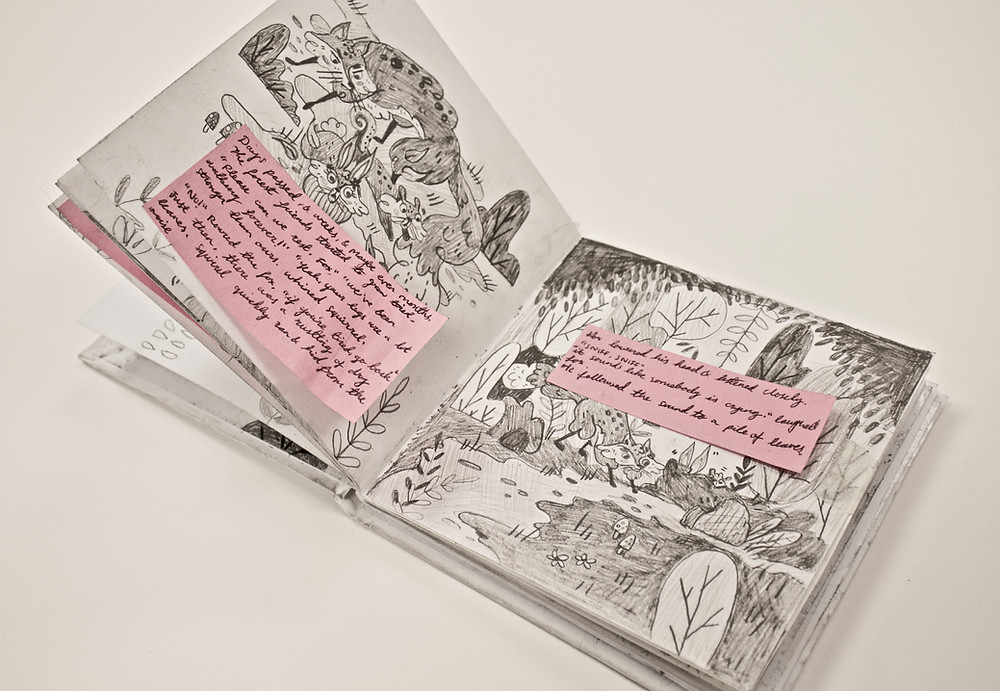 Days passed, & weeks, & maybe even months.
The forest friends started to grow tired.
"Please can we rest, fox" "We've been
walking forever!" "Yeah, your legs are a lot
stronger than ours. Whined squirrel.
"No!" Roared the fox, if you're tired go back.
Just then, there was a rustling of dry
leaves. Squirrel quickly ran & hid from the
noise.
lowered his head & listened closely.
"SNIFF, SNIFF"
it sound like somebody is crying." laughed
fox.
He followed the sound to a pile of leaves